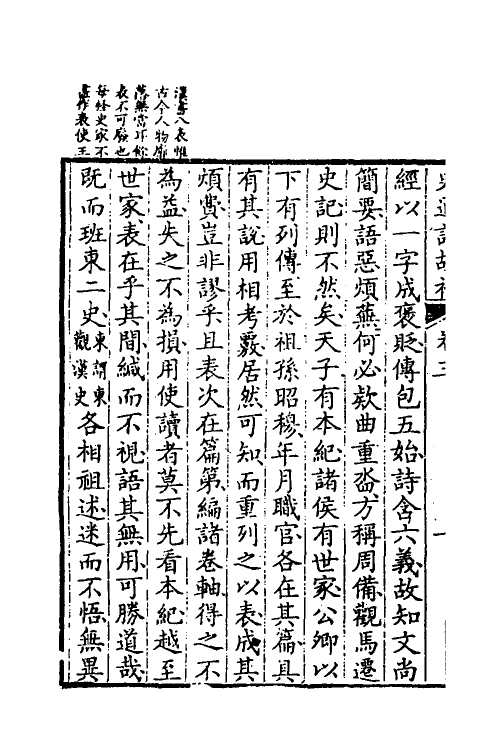 漢書八表惟
古今人物廓
落無當耳餘
表不可廢也
每怪史家不
盡作表使王
史通訓故補 卷三 一
經以一字成褒貶傳包五始詩含六義故知文尚
簡要語惡煩蕪何必欵曲重沓方稱周備觀馬遷
史記則不然矣天子有本紀諸侯有世家公卿以
下有列傳至於祖孫昭穆年月職官各在其篇具
有其說用相考覈居然可知而重列之以表成其
煩費豈非謬乎且表次在篇第編諸卷軸得之不
為益失之不為損用使讀者莫不先看本紀越至
世家表在乎其間緘而不視語其無用可勝道哉
既而班東二史東謂東觀漢史各相祖述迷而不悟無異